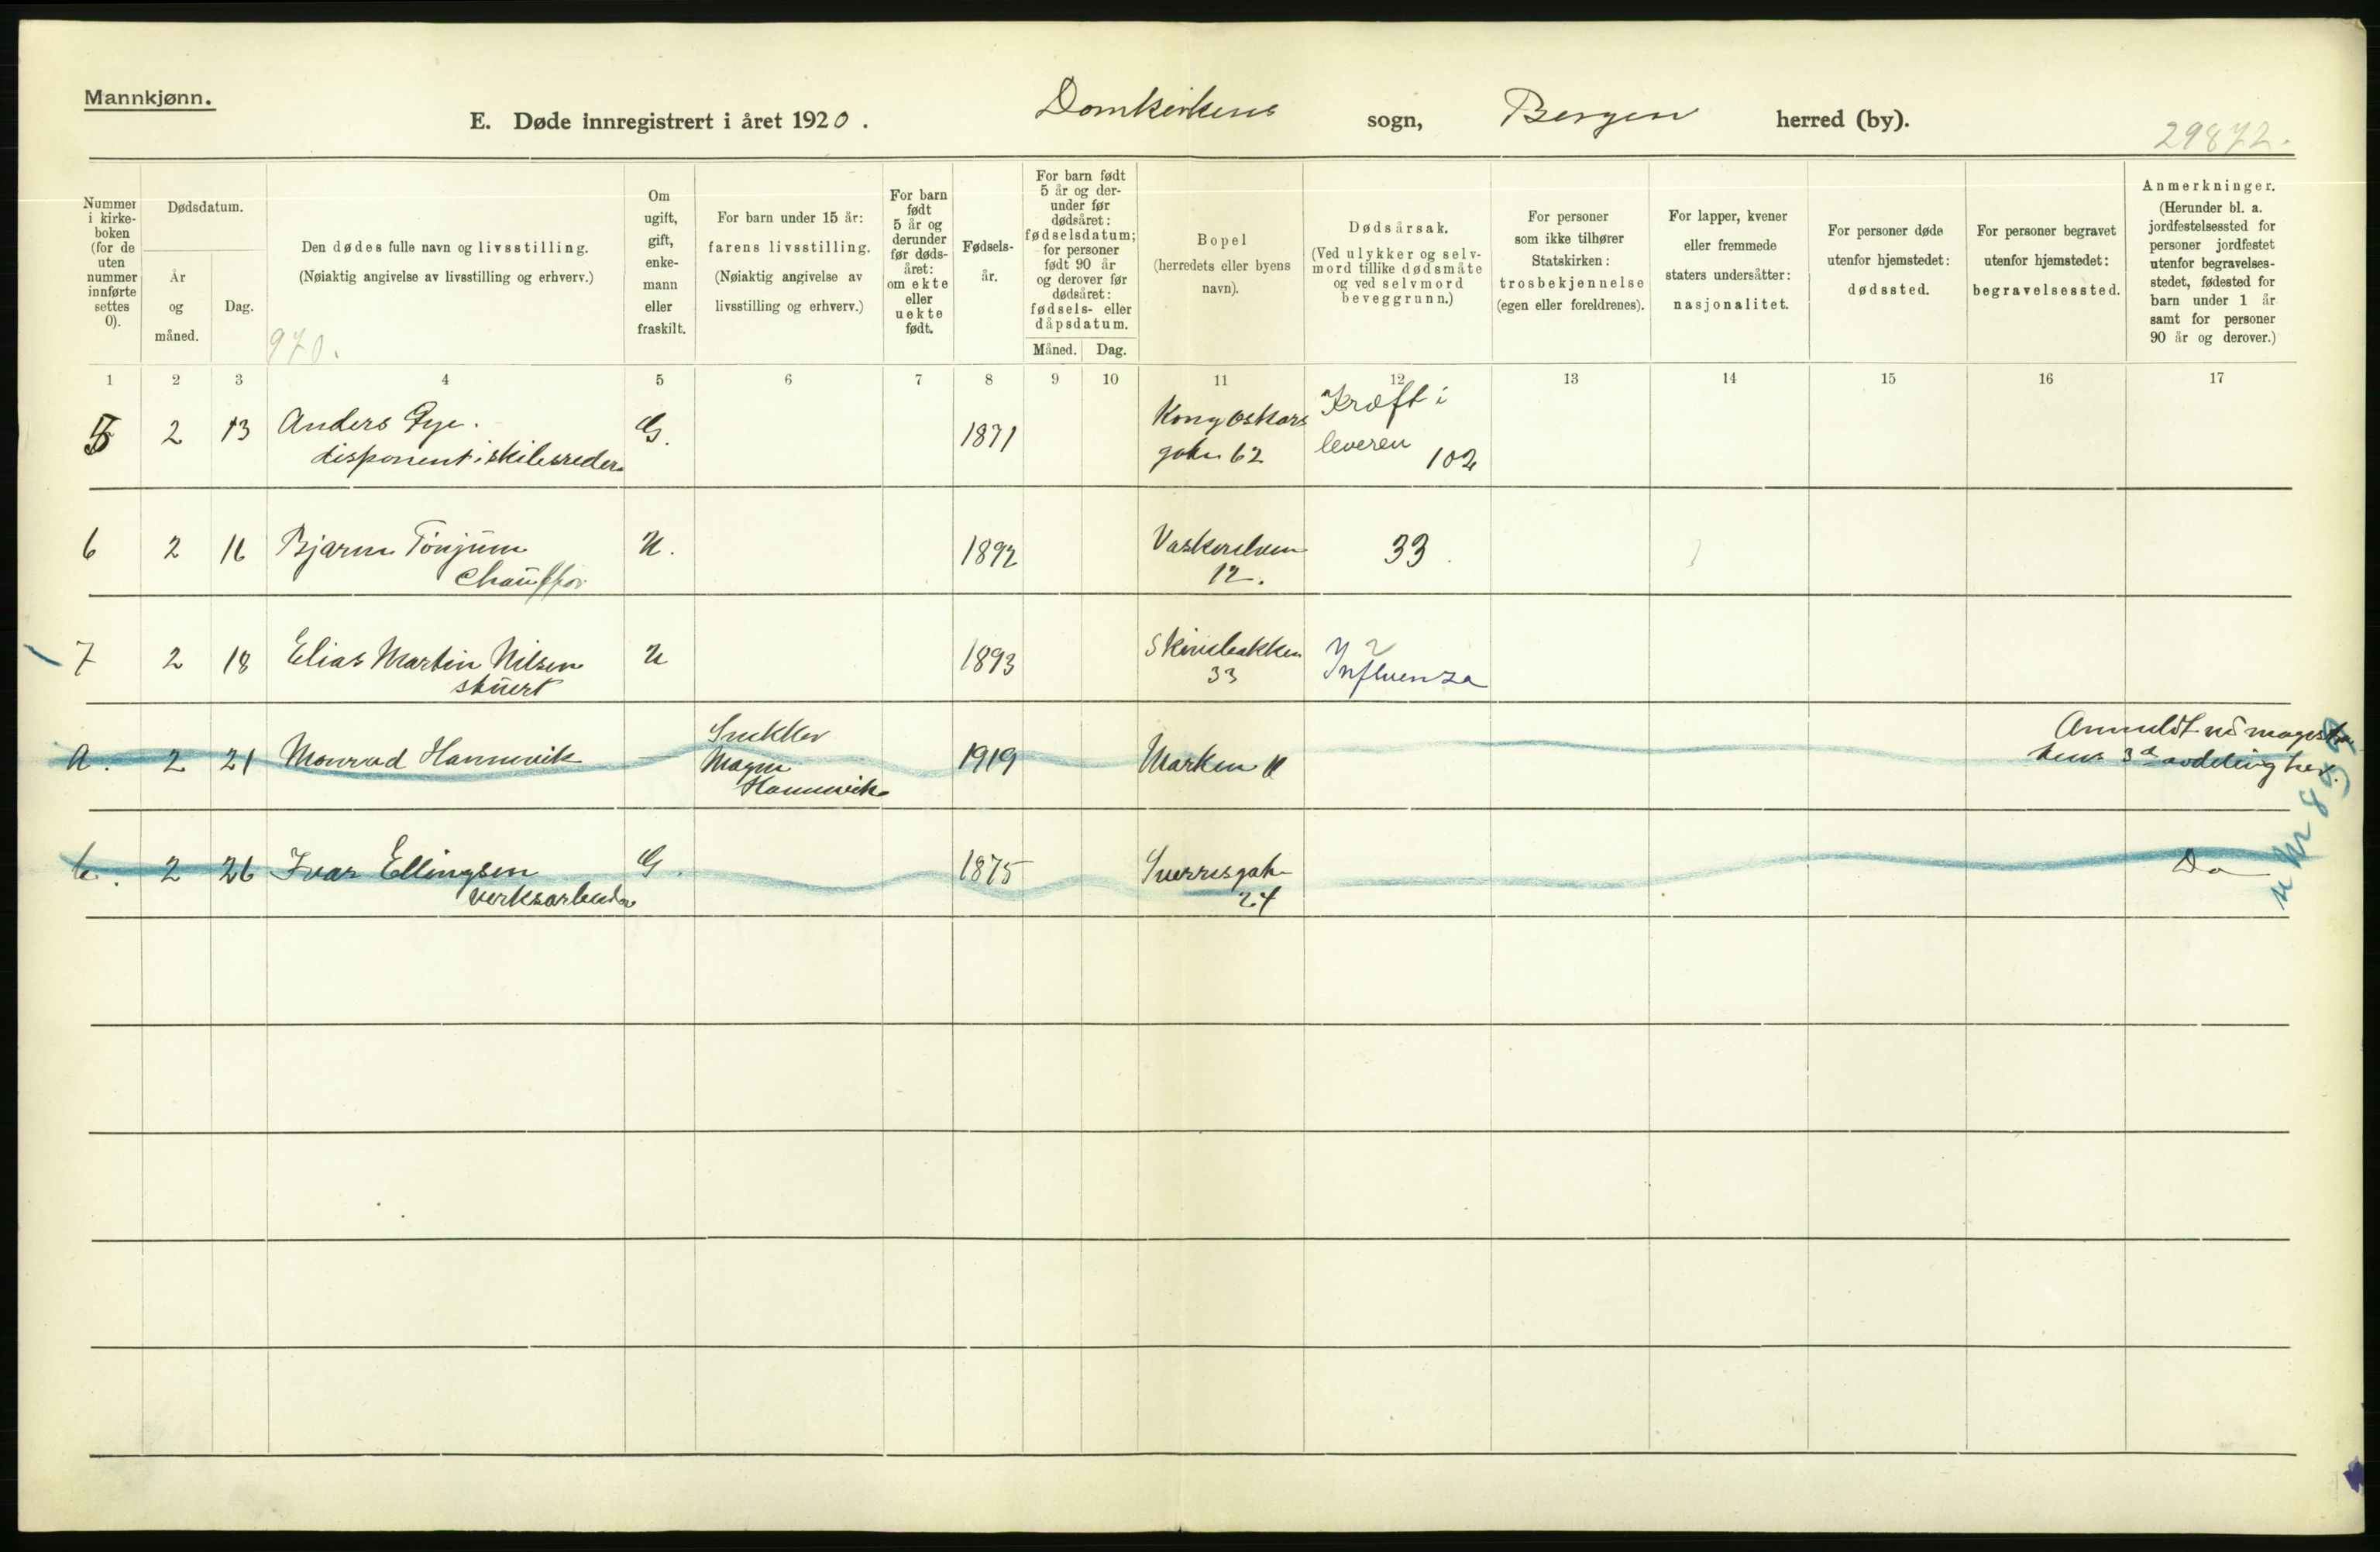 Mannkjønn.
E. Døde innregistrert i året 1920. Domkirkens sogn, Bergen herred (by).
29872.
Nummer i kirke-boken (for de uten nummer innførte settes 0).
Dødsdatum.
År og måned.
Dag.
Den dødes fulle navn og livsstilling.
(Nøiaktig angivelse av livsstilling og erhverv.)
970.
Om ugift, gift, enke-mann eller fraskilt.
For barn under 15 år:
farens livsstilling.
(Nøiaktig angivelse av
livsstilling og erhverv.)
For barn født 5 år og derunder før døds-året: om ekte eller uekte født.
Fødsels-år.
For barn født 5 år og der-under før dødsåret: fødselsdatum; for personer født 90 år og derover før dødsåret: fødsels- eller dåpsdatum.
Måned. Dag.
Bopel
(herredets eller byens
navn).
Dødsårsak.
(Ved ulykker og selv-
mord tillike dødsmåte
og ved selvmord
beveggrunn.)
For personer
som ikke tilhører
Statskirken:
trosbekjennelse
(egen eller foreldrenes).
For lapper, kvener
eller fremmede
staters undersåtter:
nasjonalitet.
For personer døde
utenfor hjemstedet:
dødssted.
For personer begravet
utenfor hjemstedet:
begravelsessted.
Anmerkninger.
(Herunder bl. a.
jordfestelsessted for
personer jordfestet
utenfor begravelses-
stedet, fødested for
barn under 1 år
samt for personer
90 år og derover.)
1 2 3 4 5 6 7 8 9 10 11 12 13 14 15 16 17
5 2 13 Anders Gye. G. 1871 Kong Oskars Kræft i
disponent i skibsrederi gaten 62 leveren 102
6 2 16 Bjarne Tönjum U. 1892 Vaskerelven 33
chauffør 12.
7 2 18 Elias Martin Nilsen U 1893 Skivebakken 2
stuert 33 Influenza
a. 2 21 Monrad Hannevik Snekker 1919 Marken 11 Anmeldt
Magne 3d avdeling her.
Hannevik
b. 2 26 Ivar Ellingsen G. 1875 Sverresgate Do
verksarbeider 24